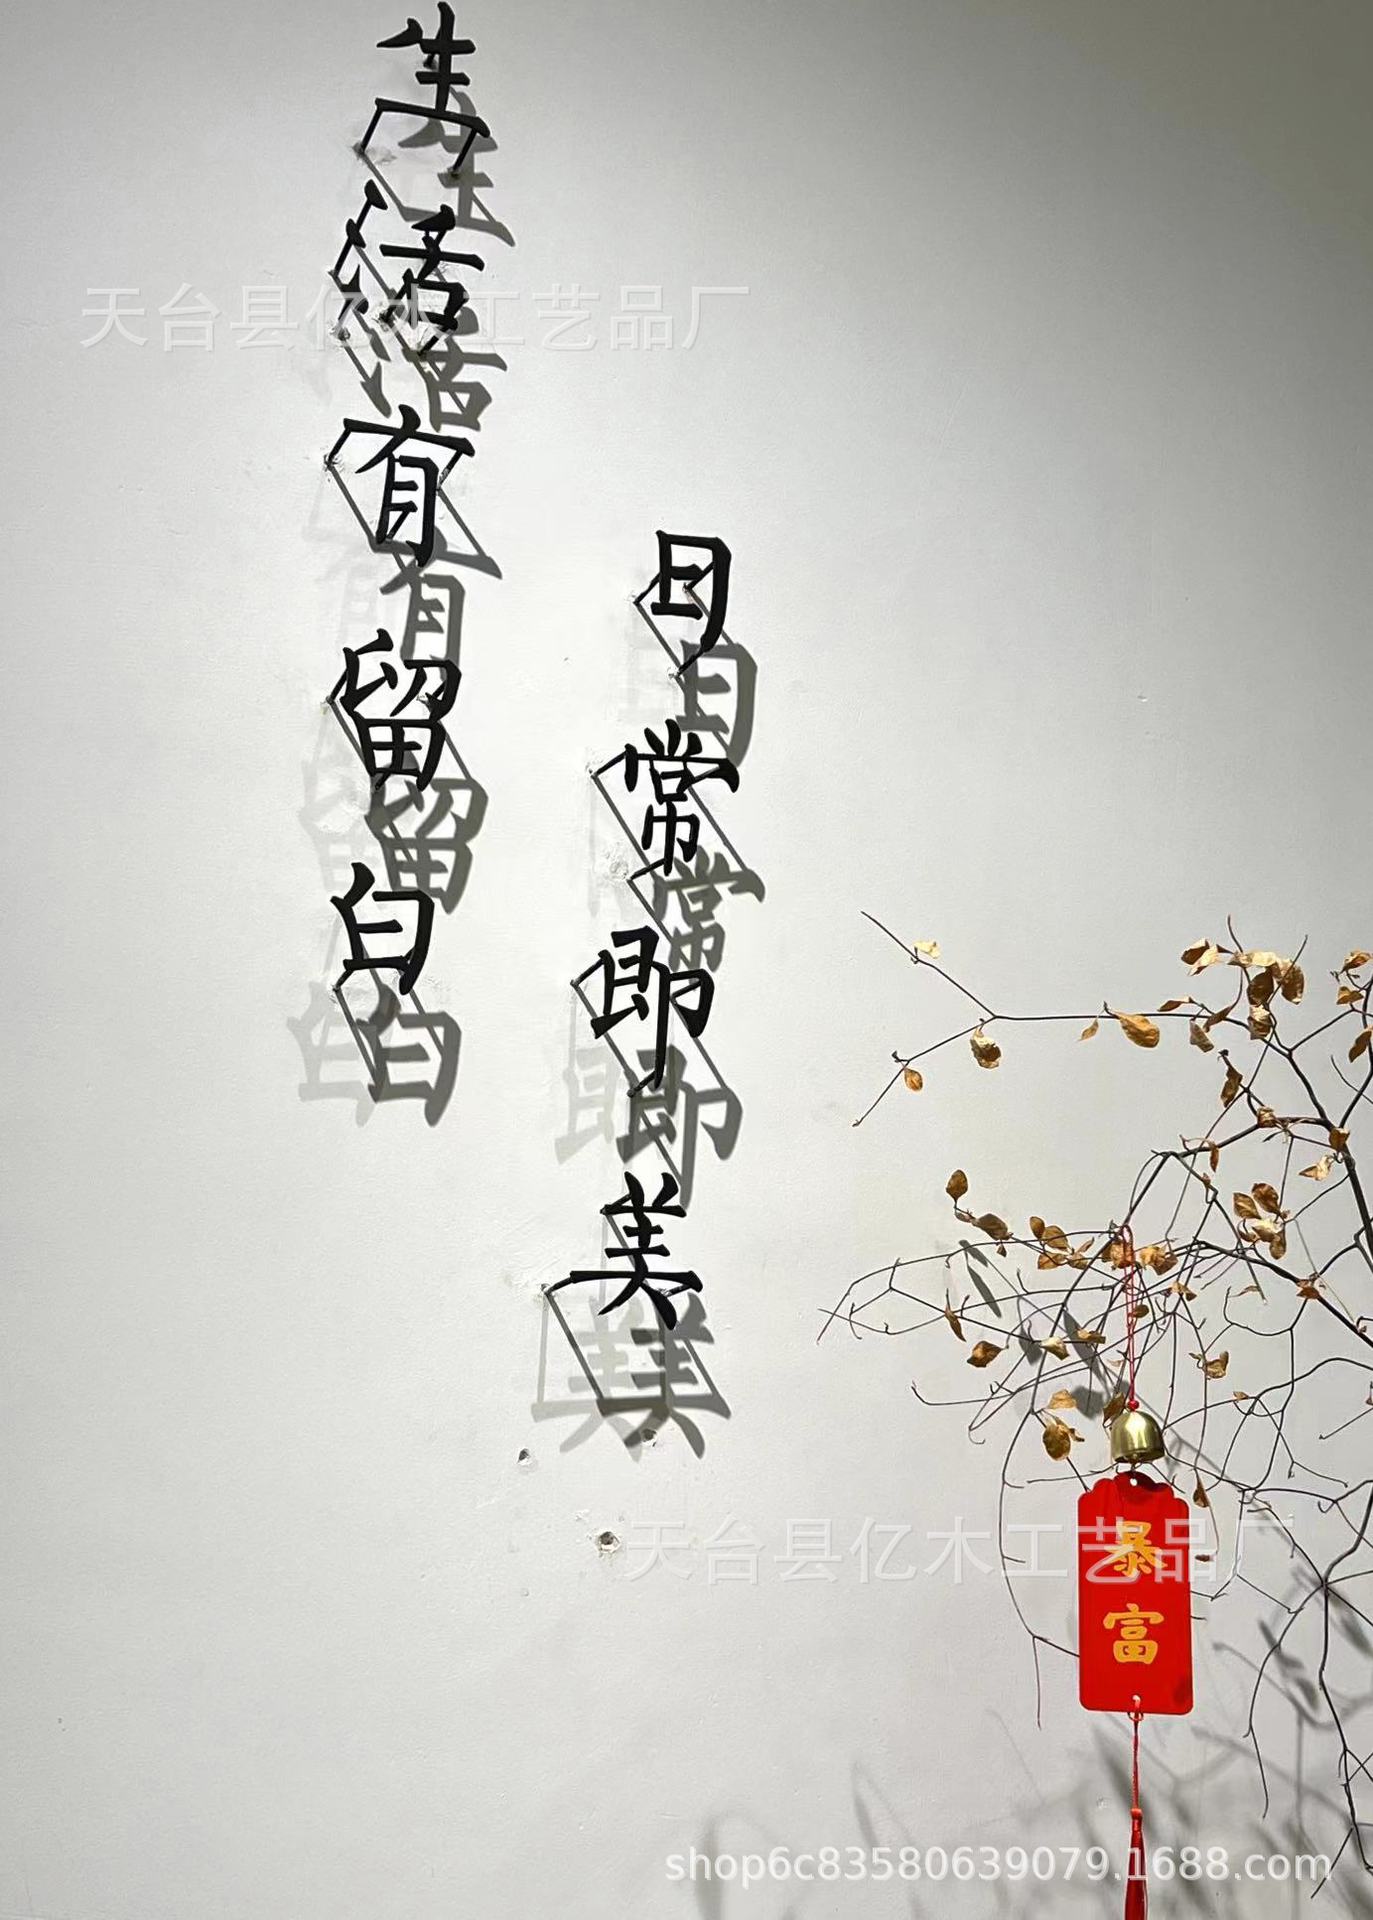 生活有留白
日常即美
天台县亿木工艺品厂
天台县亿木工艺品厂
暴富
shop6c83580639079.1688.com